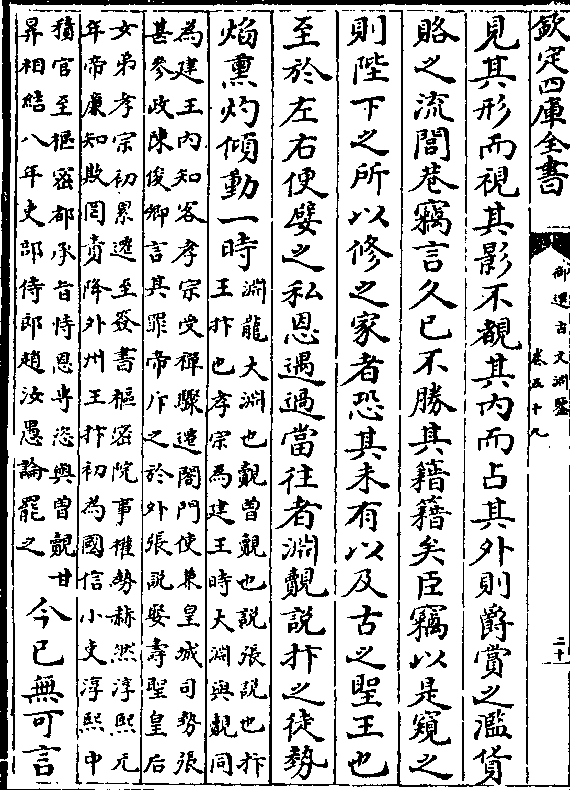 欽定四庫全書
御選古文淵鑒
卷五十九
二十
見其形而視其影不覩其內而占其外則爵賞之濫貨
賂之流閭巷竊言久已不勝其籍籍矣臣竊以是窺之
則陛下之所以修之家者恐其未有以及古之聖王也
至於左右便嬖之私恩遇過當往者淵覿説抃之徒勢
焰熏灼傾動一時
淵龍大淵也覿曾覿也説張説也抃
王抃也孝宗為建王時大淵與覿同
為建王內知客孝宗受禪驟遷閤門使兼皇城司勢張
甚參政陳俊卿言其罪帝斥之於外張説娶壽聖皇后
女弟孝宗初累遷至簽書樞密院事權勢赫然淳熙元
年帝廉知欺罔責降外州王抃初為國信小吏淳熙中
積官至樞密都承旨恃恩専恣與曾覿甘
昇相結八年吏部侍郎趙汝愚論罷之
今已無可言